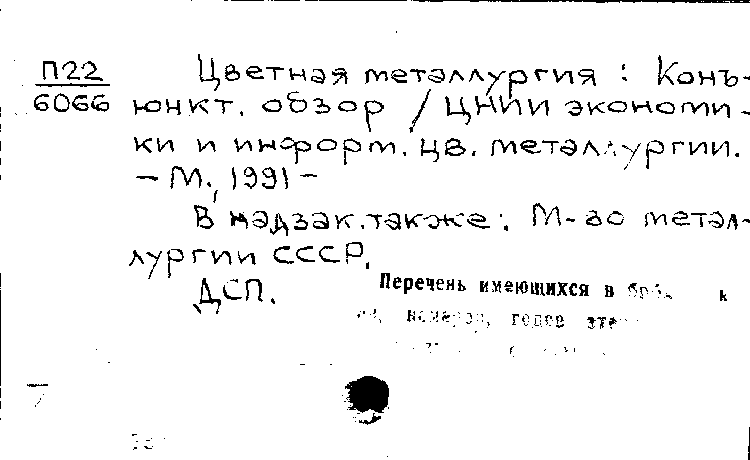 П22
6066
Цветная металлургия : Конъ-
юнкт. обзор / ЦНИИ экономи-
ки и информ. цв. металлургии.
— М., 1991 —
В надзак. также: М-во метал-
лургии СССР.
ДСП.
Перечень имеющихся в
номеров, годов
7